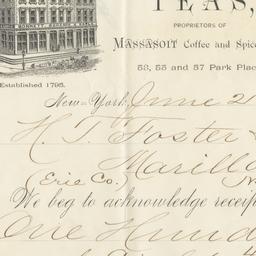 TEAS,
PROPRIETORS OF
MASSASOIT Coffee and Spice
53, 55 and 57 Park Plac
Established 1795.
New-York, June 2
H. T. Foster &
Marilla
(Erie Co.) N
We beg to acknowledge receip
One Hund